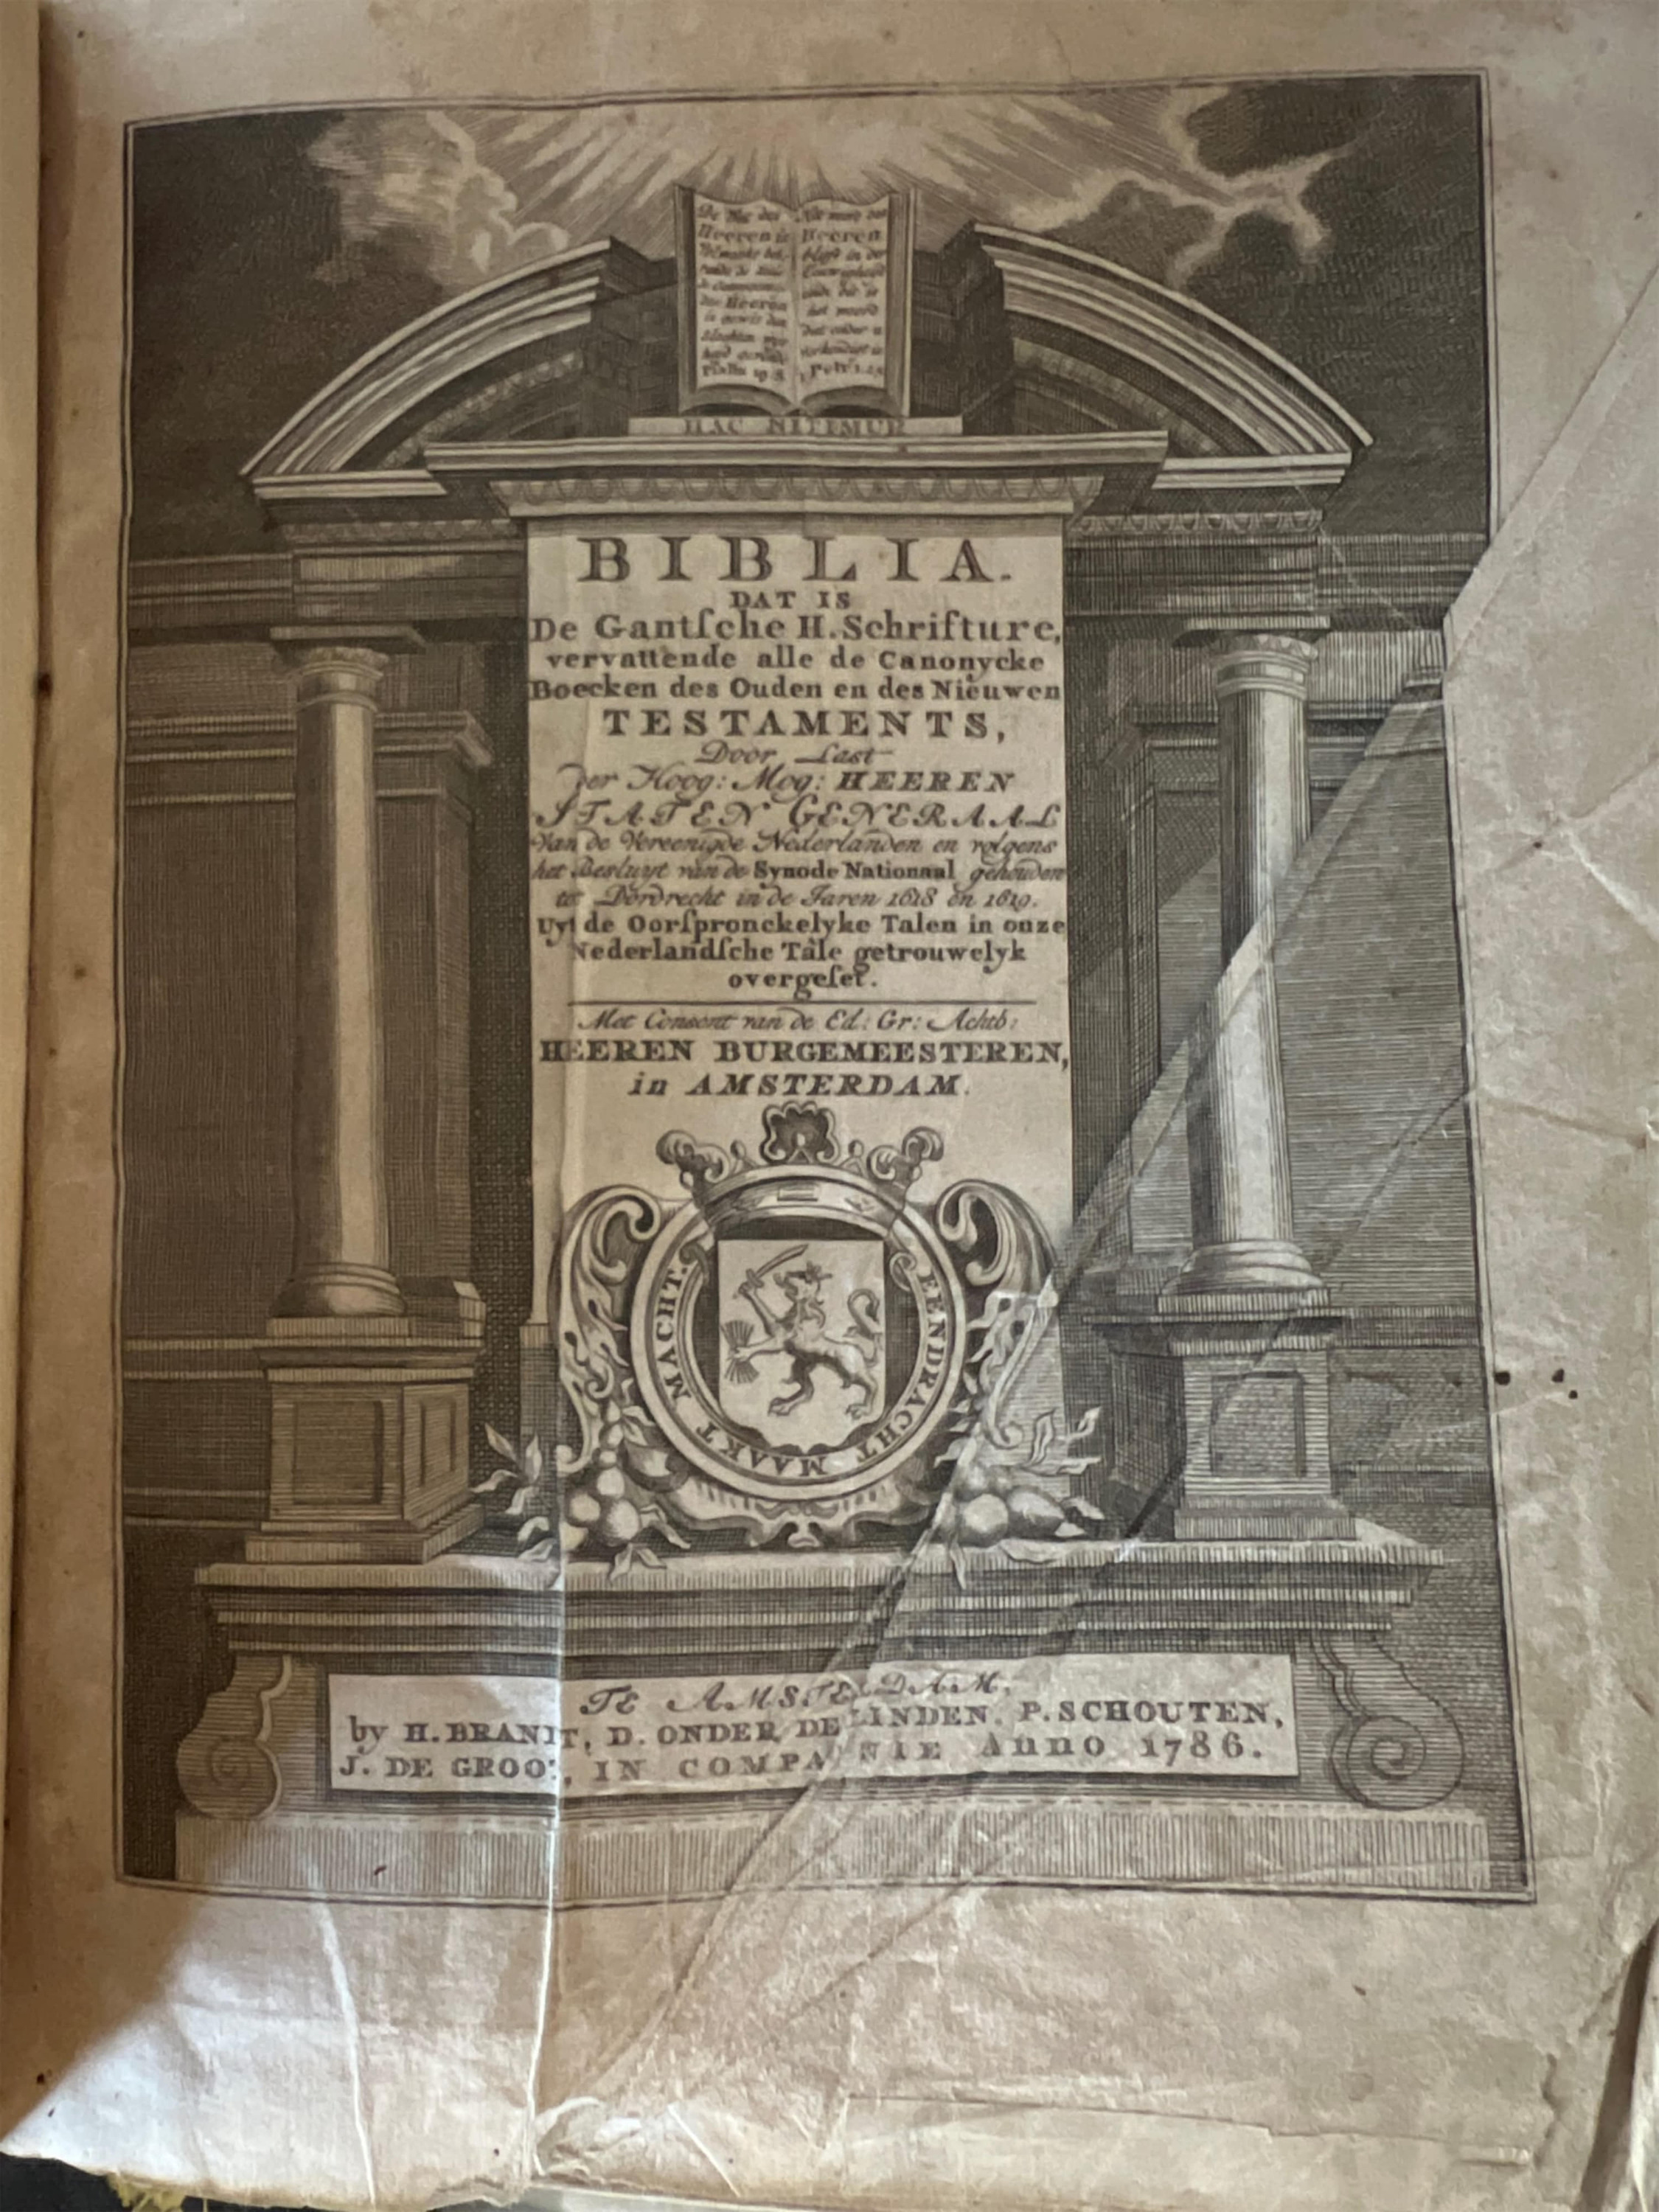 De Wet des
Heeren is
Psalm 19 8
Het woord des
Heeren
blyft in der
Eeuwigheid
ende dit is
het woord
dat onder u
verkondigt is
1 Petr 1.25
HAC NITIMUR
BIBLIA.
DAT IS
De Gantſche H. Schrifture,
vervattende alle de Canonycke
Boecken des Ouden en des Nieuwen
TESTAMENTS,
Door Last
der Hoog: Mog: HEEREN
STATEN GENERAAL
Van de Vereenigde Nederlanden en volgens
het Besluyt van de Synode Nationaal gehouden
tot Dordrecht in de Jaren 1618 en 1619.
Uyt de Oorſpronckelyke Talen in onze
Nederlandſche Tale getrouwelyk
overgeſet.
Met Consent van de Ed: Gr: Achtb:
HEEREN BURGEMEESTEREN,
in AMSTERDAM.
EENDRACHT MAAKT MACHT.
TE AMSTELDAM,
by H. BRANDT, D. ONDER DE LINDEN, P. SCHOUTEN,
J. DE GROOT, IN COMPAGNIE Anno 1786.